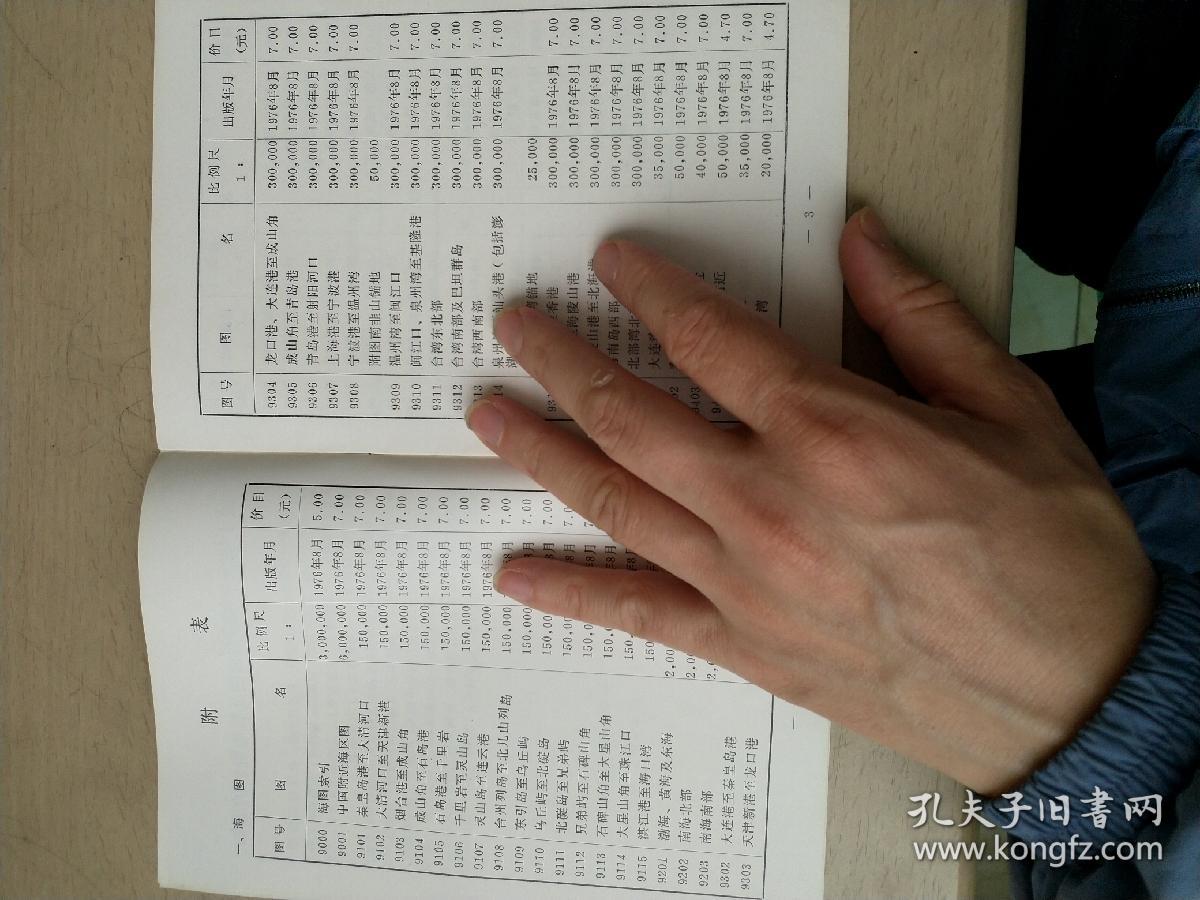 附 表
一、海 图
图号 图 名 比例尺 1: 出版年月 价目(元)
9000 海图索引 3,000,000 1976年8月 5.00
9001 中国附近海区图 6,000,000 1976年8月 7.00
9101 秦皇岛港至大清河口 150,000 1976年8月 7.00
9102 大清河口至天津新港 150,000 1976年8月 7.00
9103 烟台港至成山角 150,000 1976年8月 7.00
9104 成山角至石岛港 150,000 1976年8月 7.00
9105 石岛港至千里岩 150,000 1976年8月 7.00
9106 千里岩至灵山岛 150,000 1976年8月 7.00
9107 灵山岛至连云港 150,000 1976年8月 7.00
9108 台州列岛至北几山列岛 150,000 8月 7.00
9109 东引岛至乌丘屿 150,000 8月 7.00
9110 乌丘屿至北碇岛 150,000 8月 7.00
9111 北碇岛至兄弟屿 150,000 8月
9112 兄弟屿至石碑山角 150,0 8月
9113 石碑山角至大星山角 150,0
9114 大星山角至珠江口 150,0
9115 洪江港至海口湾 150
9201 渤海、黄海及东海 2,00
9202 南海北部 2,0
9203 南海南部 2,
9302 大连港至秦皇岛港
9303 天津新港至龙口港
图号 图 名 比例尺 1: 出版年月 价目(元)
9304 龙口港、大连港至成山角 300,000 1976年8月 7.00
9305 成山角至青岛港 300,000 1976年8月 7.00
9306 青岛港至射阳河口 300,000 1976年8月 7.00
9307 上海港至宁波港 300,000 1976年8月 7.00
9308 宁波港至温州湾 300,000 1976年8月 7.00
附图南韭山锚地 50,000
9309 温州湾至闽江口 300,000 1976年8月 7.00
9310 闽江口、泉州湾至基隆港 300,000 1976年8月 7.00
9311 台湾东北部 300,000 1976年8月 7.00
9312 台湾南部及巴坦群岛 300,000 1976年8月 7.00
13 台湾西南部 300,000 1976年8月 7.00
14 泉州 汕头港(包括澎 300,000 1976年8月 7.00
湖 锚地 25,000
93 香港 300,000 1976年8月 7.00
海陵山港 300,000 1976年8月 7.00
山港至北海港 300,000 1976年8月 7.00
南岛西部 300,000 1976年8月 7.00
北部湾北 300,000 1976年8月 7.00
大连 35,000 1976年8月 7.00
02 50,000 1976年8月 7.00
9403 40,000 1976年8月 7.00
9 近 50,000 1976年8月 4.70
35,000 1976年8月 7.00
湾 20,000 1976年8月 4.70
— 3 —
孔夫子旧书网
www.kongfz.com